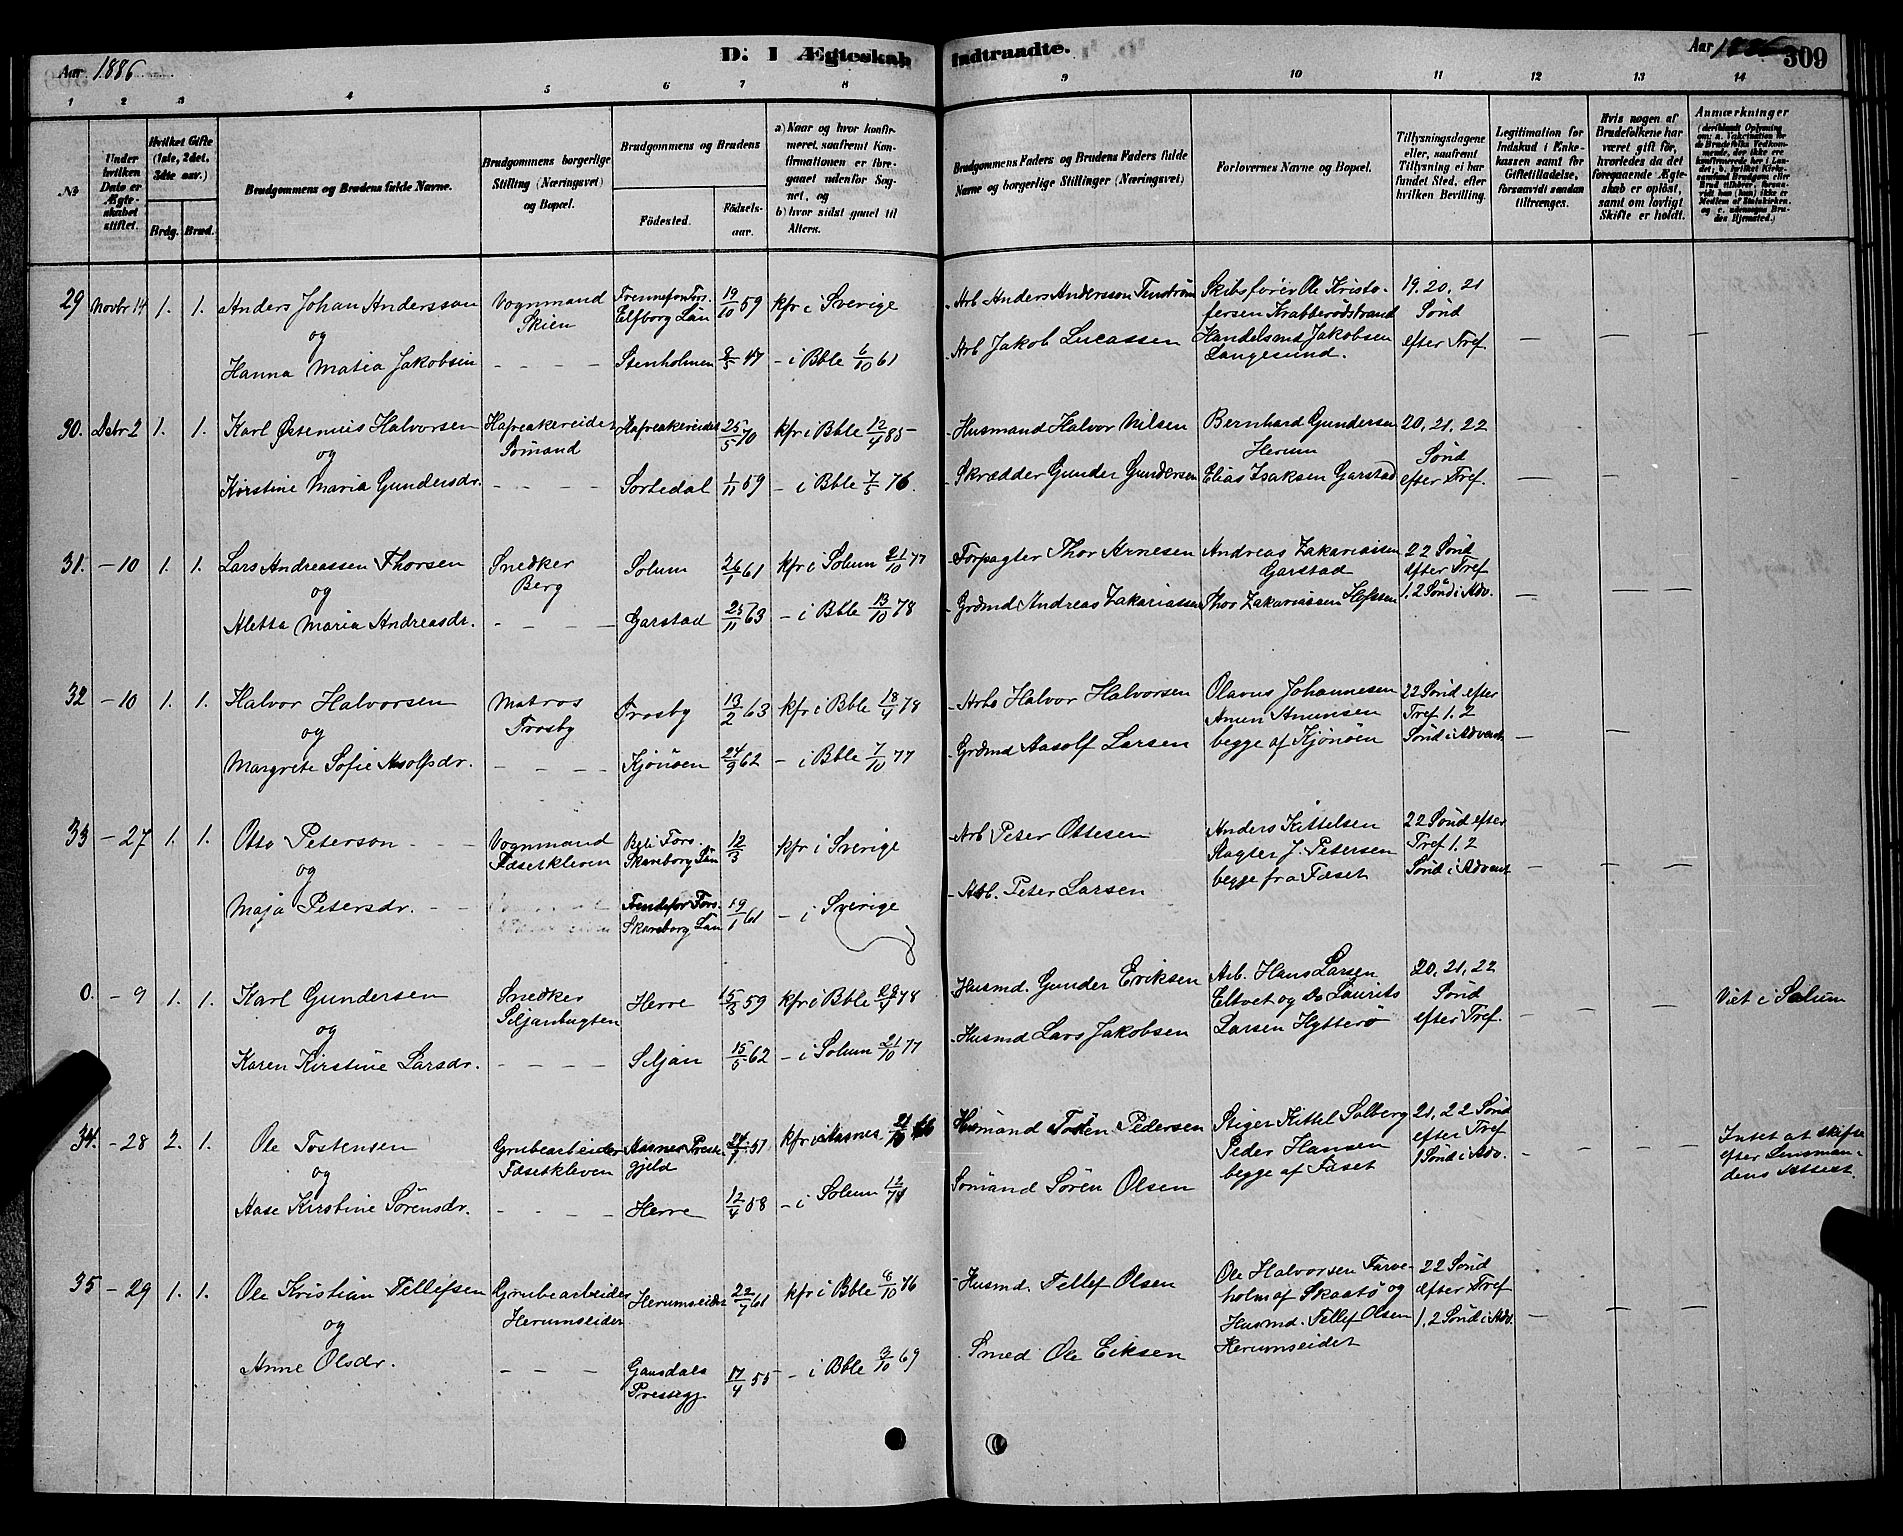 Aar 1886
D. I Ægteskab Indtraadte.
Aar 1886 309
1 2 3 4 5 6 7 8 9 10 11 12 13 14
No
Under hvilken Dato er Ægteskabet stiftet.
Hvilket Gifte (1ste, 2det, 3dte osv.)
Brdg. Brud.
Brudgommens og Brudens fulde Navne.
Brudgommens borgerlige Stilling (Næringsvei) og Bopæl.
Brudgommens og Brudens
Fødested.
Fødselsaar.
a) Naar og hvor konfirmeret, saafremt Konfirmationen er foregaaet udenfor Sognet, og
b) hvor sidst gaaet til Alters.
Brudgommens Faders og Brudens Faders fulde Navne og borgerlige Stillinger (Næringsvei)
Forlovernes Navne og Bopæl.
Tillysningsdagene eller, saafremt Tillysning ei har fundet Sted, efter hvilken Bevilling.
Legitimation for Indskud i Enkekassen samt for Giftetilladelse, forsaavidt saadan tiltrænges.
Hvis nogen af Brudefolkene har været gift før, hvorledes da det foregaaende Ægteskab er opløst, samt om lovligt Skifte er holdt.
Anmærkninger
29 Novbr 14 1. 1. Anders Johan Andersson Vognmand Skien Elfborg Län 19/10 59 kfr i Sverige
og
Hanna Matea Jakobsen - - - - Stenholmen 47 - i Bble 6/10 61
Arb Anders Andersson Skibsfører Ole Kristofersen Krabberødstrand 19. 20. 21 Sønd efter Tref
Arb Jakob Lucassen Handelsmd Jakobsen Langesund.
30. Debr 2 1. 1. Karl Østenius Halvorsen Hafreakereidet Sømand Hafreakereidet 25/5 70 kfr i Bble 12/4 85
og
Kirstine Maria Gundersdr. - - - Sortedal 1/11 59 - i Bble 7/5 76.
Husmand Halvor Nilsen Bernhard Gundersen Herum 20, 21, 22 Sønd efter Tref.
Skrædder Gunder Gundersen Elias Isaksen Garstad
31. - 10 1. 1. Lars Andreassen Thorsen Snedker Berg Solum 26/1 61 kfr i Solum 21/10 77
og
Aletta Maria Andreasdr. - - - - Garstad 25/11 63 - i Bble 13/10 78
Forpagter Thor Arnesen Andreas Zakariassen Garstad 22 Sønd efter Tref 1. 2 Sønd i Adv.
Grdmd Andreas Zakariassen Thor Zakariassen
32 - 10 1. 1. Halvor Halvorsen Matros Trosby Trosby 13/2 63 kfr i Bble 18/4 78
og
Margrete Sofie Asolfsdr. - - - - Kjønøen 24/9 62 - i Bble 7/10 77
Arb Halvor Halvorsen Olavus Johannesen 22 Sønd efter Tref 1. 2 Sønd i Advent
Grdmd Aasolf Larsen Amun Amunsen begge af Kjønøen
33 - 27 1. 1. Otto Peterson - - - Vognmand Fosetkleven Fors. Skaraborg Län 12/3 kfr i Sverige
og
Maja Petersdr. - - Fors. Skaraborg Län 19/1 61 - i Sverige
Arb Peter Ottesen Anders Kittelsen 22 Sønd efter Tref 1. 2 Sønd i Advent
Arb. Peter Larsen Slagter J. Petersen begge fra Foset
0. - 9 1. 1. Karl Gundersen Snedker Siljanbugten Herre 15/3 59 kfr i Bble 78
og
Karen Kirstine Larsdr. - - - - Siljan 15/5 62 - i Solum 21/10 77
Husmd. Gunder Eriksen Arb. Hans Larsen Eltvet og Do Laurits Larsen Hytterø 20, 21, 22 Sønd efter Tref.
Husmd Lars Jakobsen
Viet i Solum
34. - 28 2. 1. Ole Tostensen Grubearbeider Fosetkleven Præstegjeld 51 kfr i
og
Aase Kirstine Sørensdr. - - - - Herre 12/4 58 - i Solum
Husmand Tosten Pedersen Stiger Kittel Solberg 21, 22 Sønd efter Tref 1 Sønd i Adv.
Sømand Søren Olsen Peder Hansen begge af Foset
Intet at skifte efter Lensmandens Attest.
35 - 29 1. 1. Ole Kristian Tellefsen Grubearbeider Herumseidet Herumseidet 22/7 61 kfr i Bble 8/10 76
og
Anne Olsdr. - - - Gausdals Prestegj 17/4 55 - i Bble 3/10 69
Husmd. Tellef Olsen Ole Halvorsen Farveholm af Skaatø og Husmd. Tellef Olsen Herumseidet 22 Sønd efter Tref 1, 2 Sønd i Adv.
Smed Ole Eiksen